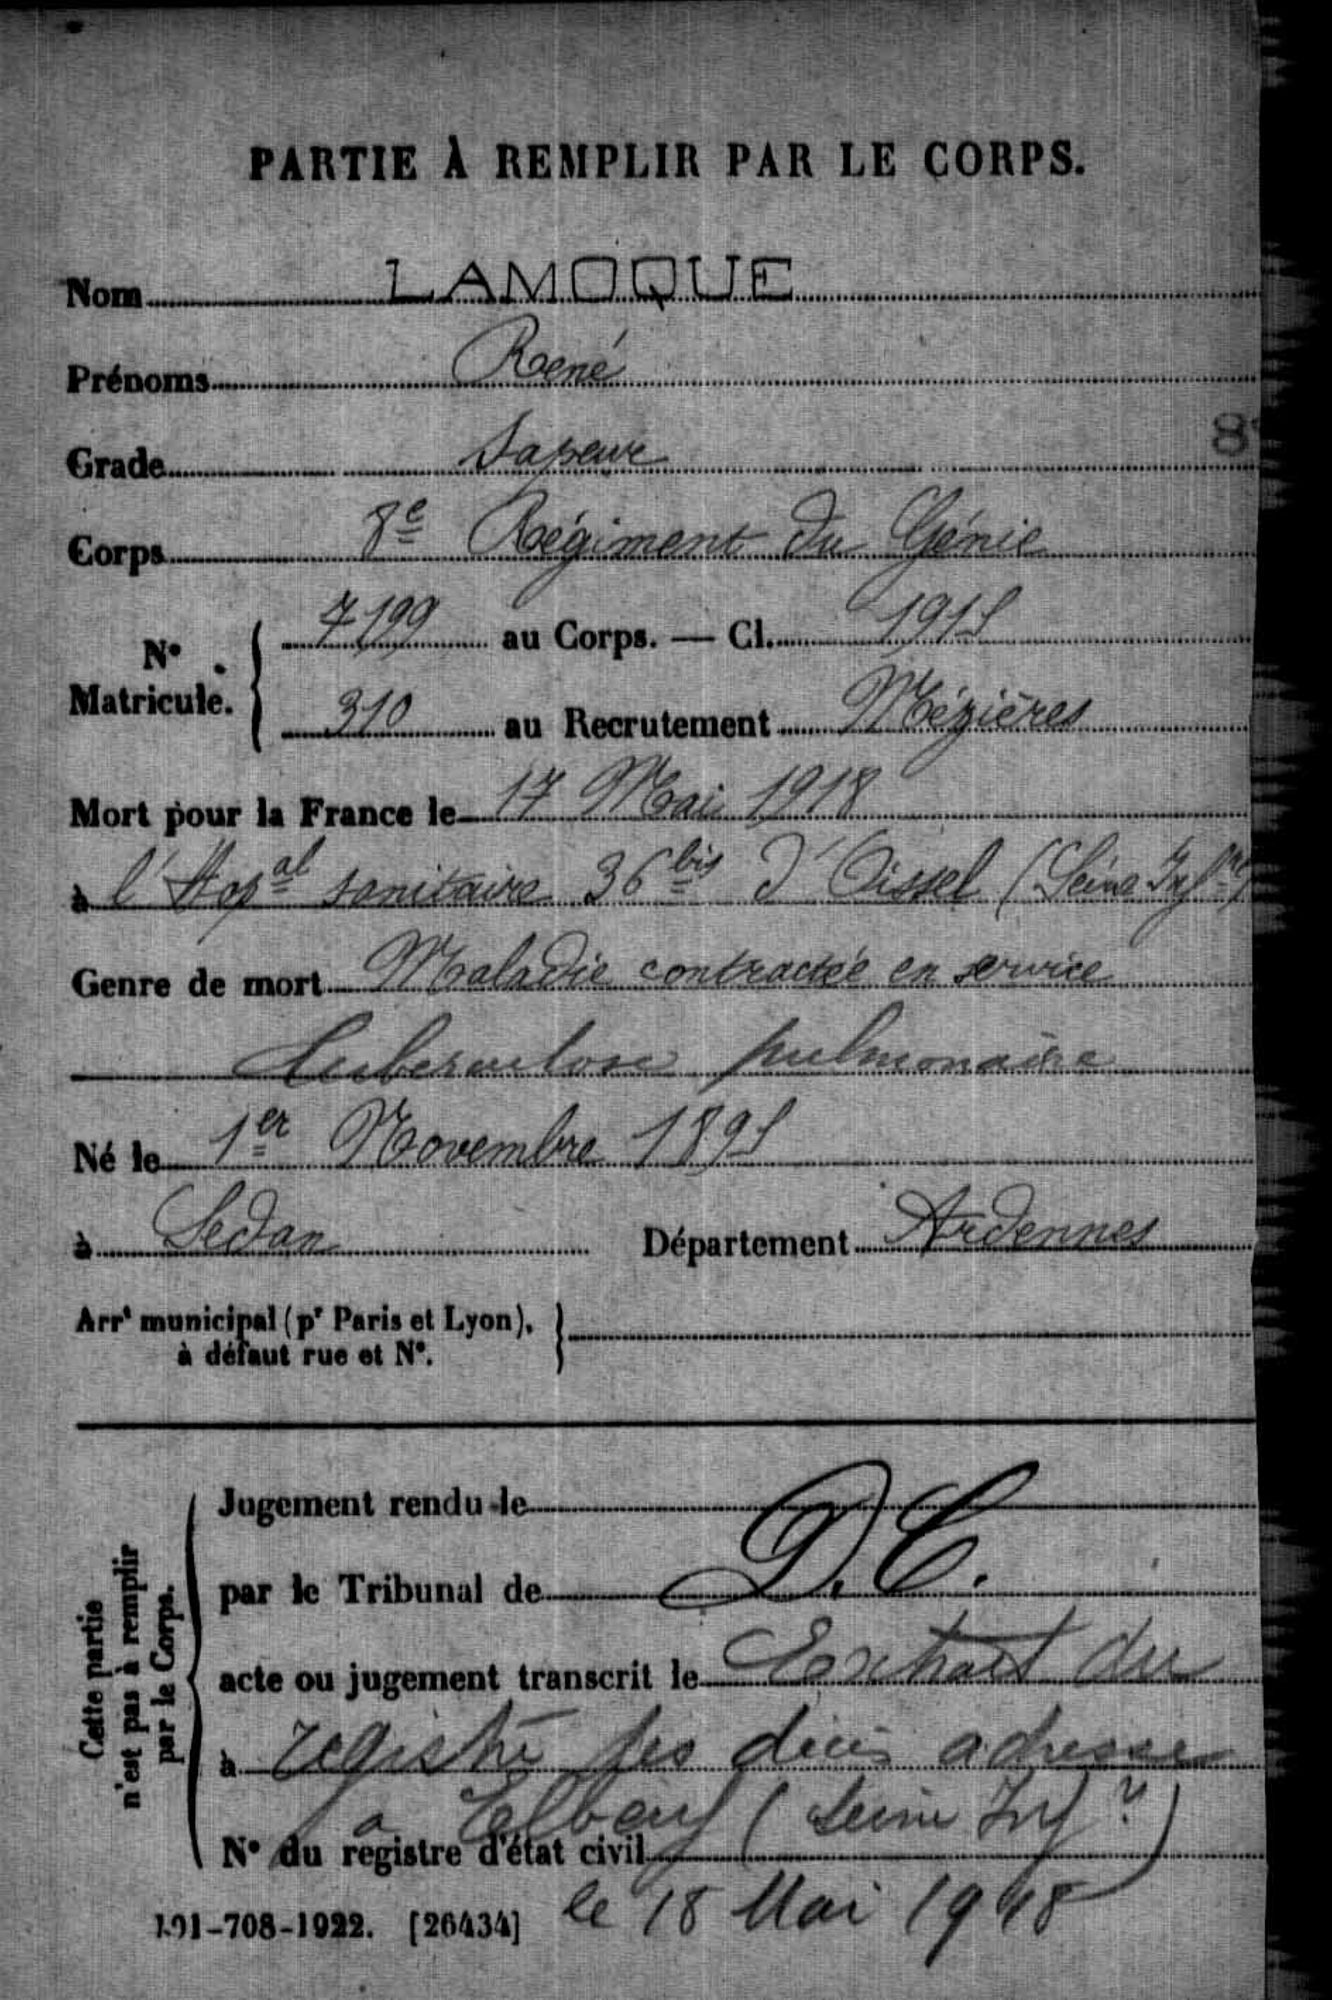 PARTIE À REMPLIR PAR LE CORPS.
Nom LAMOQUE
Prénoms René
Grade Sapeur
8
Corps 8e Régiment du Génie
N° Matricule. 7199 au Corps. — Cl. 1915
310 au Recrutement Mézières
Mort pour la France le 17 Mai 1918
à l'Hopal sanitaire 36bis d'Oissel (Seine Infre)
Genre de mort Maladie contractée en service
Tuberculose pulmonaire
Né le 1er Novembre 1895
à Sedan Département Ardennes
Arrt municipal (pr Paris et Lyon),
à défaut rue et N°.
Cette partie
n'est pas à remplir
par le Corps.
Jugement rendu le
par le Tribunal de D.C.
acte ou jugement transcrit le Extrait du
à registre des décès adressé
à Elbeuf (Seine Infre)
N° du registre d'état civil
le 18 Mai 1918
191-708-1922. [26434]